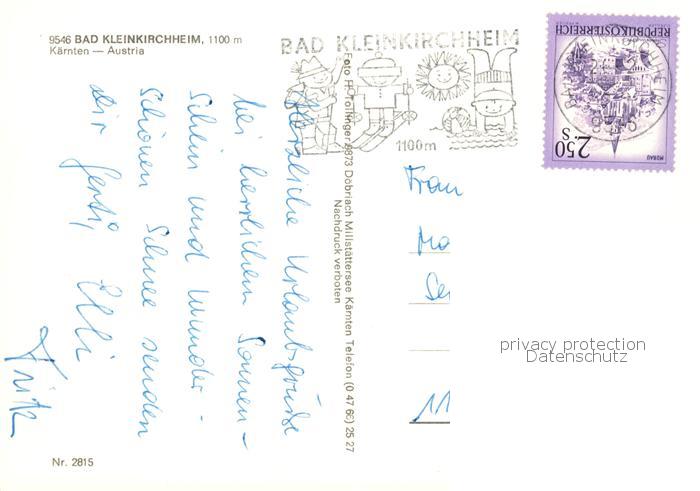 9546 BAD KLEINKIRCHHEIM, 1100 m
Kärnten — Austria
BAD KLEINKIRCHHEIM
1100m
REPUBLIK ÖSTERREICH
2.50
S
MURAU
Foto H. Tollinger 9873 Döbriach Millstättersee Kärnten Telefon (0 47 66) 25 27
Nachdruck verboten
Herzliche Urlaubsgrüße
bei herrlichem Sonnen-
schein und wunder-
schönen Schnee senden
dir
Elli
Fritz
Frau
Ma
Se
11
privacy protection
Datenschutz
Nr. 2815